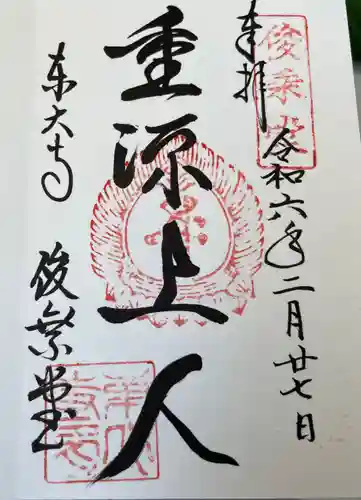 奉拝
俊乗堂
令和六年二月廿七日
重源上人
東大寺
俊乗堂